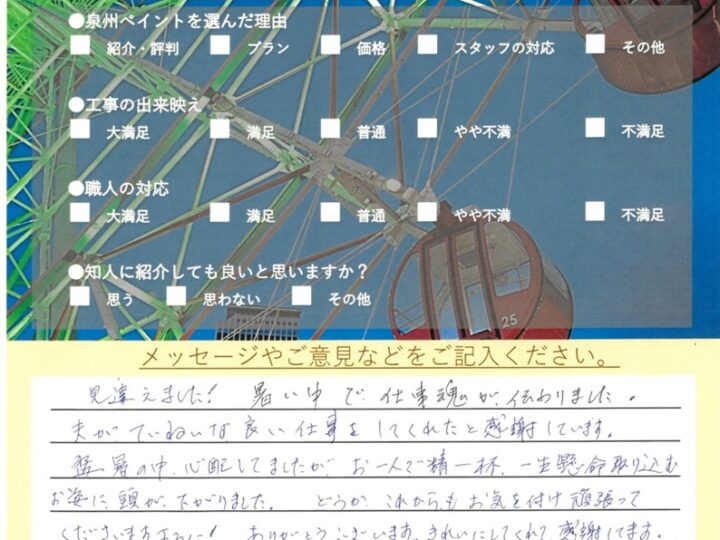 ●泉州ペイントを選んだ理由
紹介・評判 プラン 価格 スタッフの対応 その他
●工事の出来映え
大満足 満足 普通 やや不満 不満足
●職人の対応
大満足 満足 普通 やや不満 不満足
●知人に紹介しても良いと思いますか？
思う 思わない その他
25
メッセージやご意見などをご記入ください。
見違えました! 暑い中で仕事魂が伝わりました。
夫がていねいな良い仕事をしてくれたと感謝しています。
猛暑の中、心配してましたが、お一人で精一杯、一生懸命取り込む
お姿に、頭が下がりました。 どうか、これからもお気を付け頑張って
くださいませ ありがとうございます。きれいにしてくれて、感謝してます。